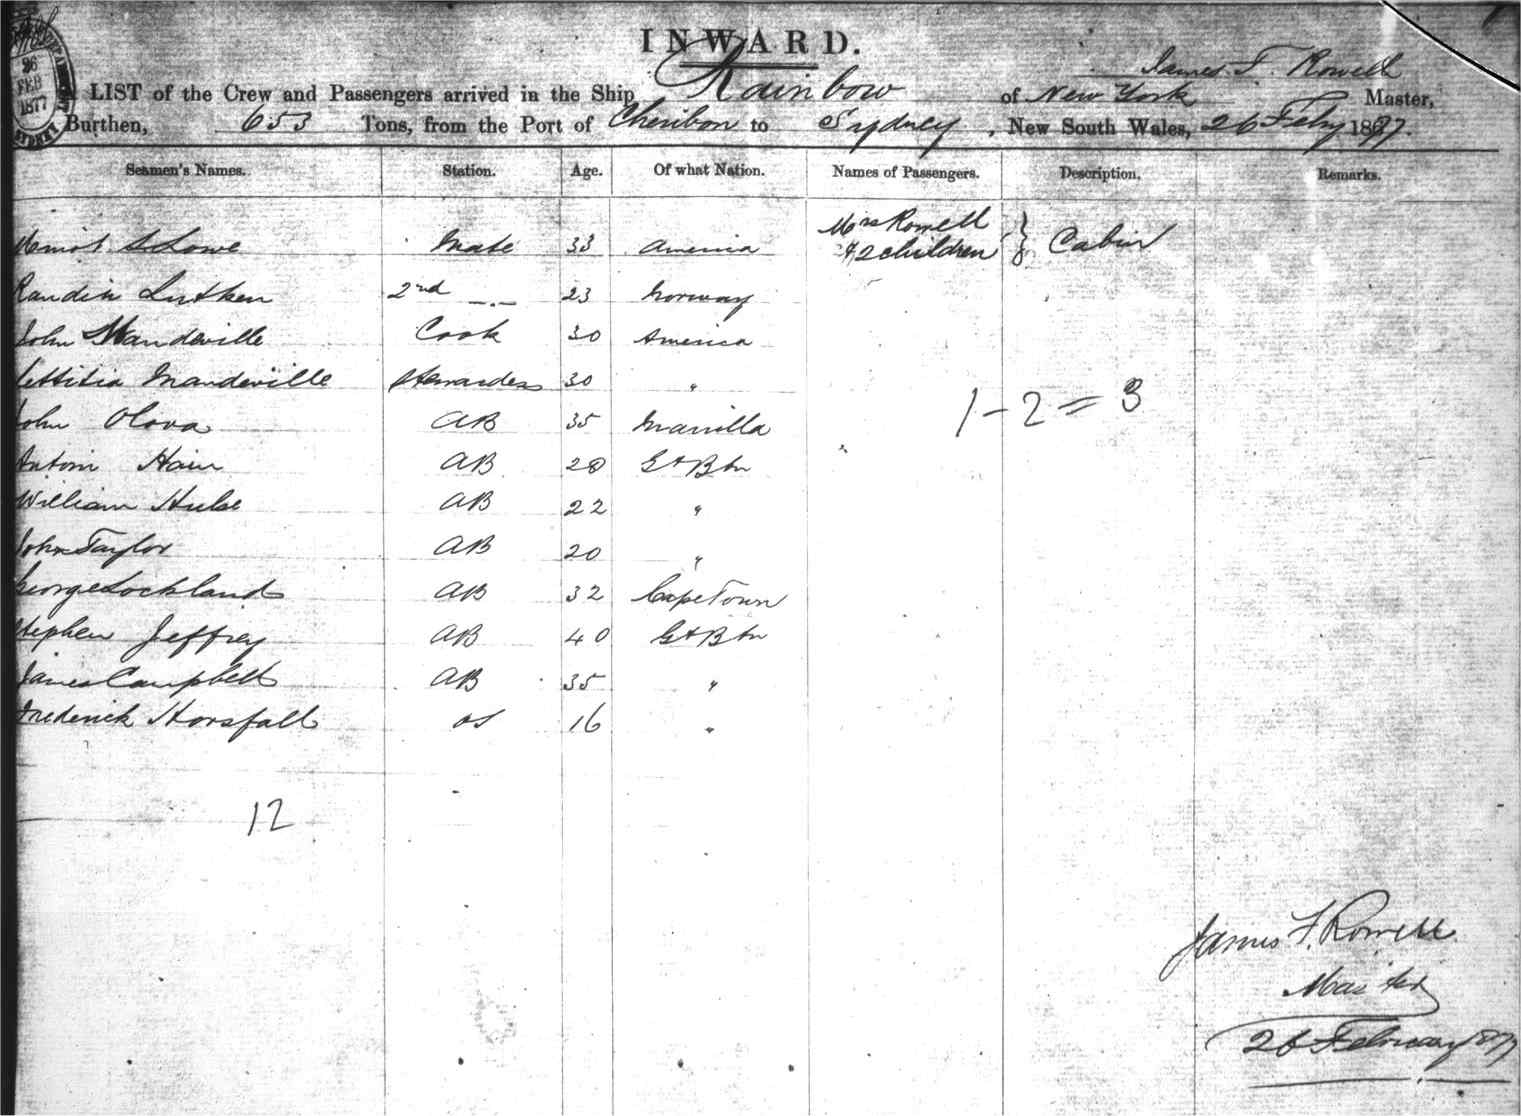 26
FEB
1877
SYDNEY
INWARD.
James F. Rowell
LIST of the Crew and Passengers arrived in the Ship Rainbow of New York Master,
Burthen, 653 Tons, from the Port of Cheribon to Sydney, New South Wales, 26 Feby 1877.
Seamen's Names. Station. Age. Of what Nation. Names of Passengers. Description. Remarks.
Mrs Rowell
Lowe Mate 33 America & 2 children } Cabin
Lutken 2nd —.— 23 Norway
John Mandeville Cook 30 America
Lettitia Mandeville Stewardess 30 "
John Olova AB 35 Manilla
1 - 2 = 3
Antoni Hain AB 28 Gt Btn
William Hulse AB 22 "
John Taylor AB 20 "
George Lockland AB 32 Cape Town
Stephen Jeffrey AB 40 Gt Btn
James Campbell AB 35 "
Frederick Horsfall OS 16 "
12
James F. Rowell
Master
26 February 1877